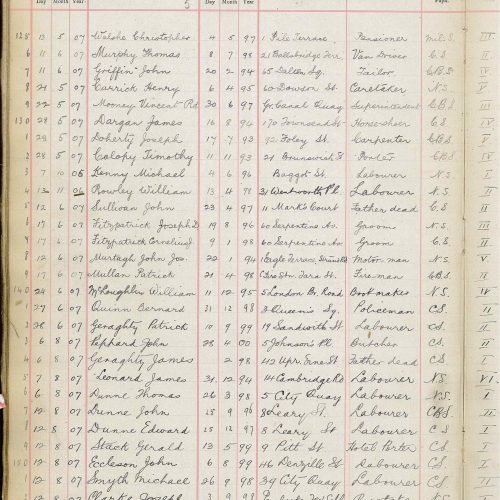 Day Month Year 5 Day Month Year
128 13 5 07 Welshe Christopher 4 5 97 1 Pile Terrace, Pensioner Mil. S. III
6 11 6 07 Murphy Thomas 8 7 98 21 Ballsbridge Terr, Van Driver C.S. II
7 11 6 07 Griffin John 20 2 94 65 Sq. Tailor C.B.S. IV
8 21 5 07 Carrick Henry 6 4 95 60 Dawson St. Caretaker N.S. V
9 22 5 07 Mooney Vincent Pd 30 6 97 Gr. Canal Quay Superintendent C.B.S. III
130 28 5 07 Dargan James 16 8 94 170 Townsend St. Horse-shoer C.S. IV
1 28 5 07 Doherty Joseph 17 7 93 92 Foley St. Carpenter C.B.S. V
2 28 5 07 Colohy Timothy 11 11 93 21 Brunswick St Porter C.B.S. IV
3 7 10 06 Kenny Michael 4 6 96 Baggot St. Labourer N.S. I
4 13 11 06 Rowley William 13 4 98 31 Wentworth Pl. Labourer N.S. II
5 12 6 07 Sullivan John 23 4 97 11 Mark's Court Father dead C.S. II
6 17 6 07 Fitzpatrick Joseph D. 19 8 96 60 Serpentine Av. Groom N.S. II
7 17 6 07 Fitzpatrick Cornelius J. 9 1 98 60 Serpentine Av. Groom C.S. II
8 12 6 07 Murtagh John Jos. 22 1 94 1 Eagle Terrace, Motor-man N.S. V
9 17 6 07 Mullan Patrick 21 4 98 Tara St. Fireman C.B.S. II
140 24 6 07 McLoughlin William 11 12 95 5 London Br. Road Bootmaker N.S. IV
1 27 6 07 Quinn Bernard 31 12 98 3 Queen's Sq. Policeman C.S. I
2 28 6 07 Geraghty Patrick 10 9 99 19 Sandwith St. Labourer C.S. I
3 6 8 07 Pephard John 28 4 00 5 Johnson's Pl Butcher C.S. I
4 6 8 07 Geraghty James 2 98 42 Upr. Erne St Father dead C.S. I
5 7 8 07 Leonard James 31 12 94 14 Cambridge Rd Labourer N.S. VI
6 6 8 07 Dunne Thomas 26 3 98 5 City Quay Labourer N.S. I
7 12 8 07 Dunne John 15 9 96 8 Leary St. Labourer C.B.S. I
8 12 8 07 Dunne Edward 15 12 97 8 Leary St Labourer C.S. I
9 12 8 07 Stack Gerald 13 5 99 9 Pitt St Hotel Porter C.S. I
150 12 8 07 Eccleson John 6 8 99 46 Denzille St Labourer C.S. I
1 12 8 07 Smyth Michael 26 9 98 39 City Quay Labourer C.S. I
Clarke Joseph